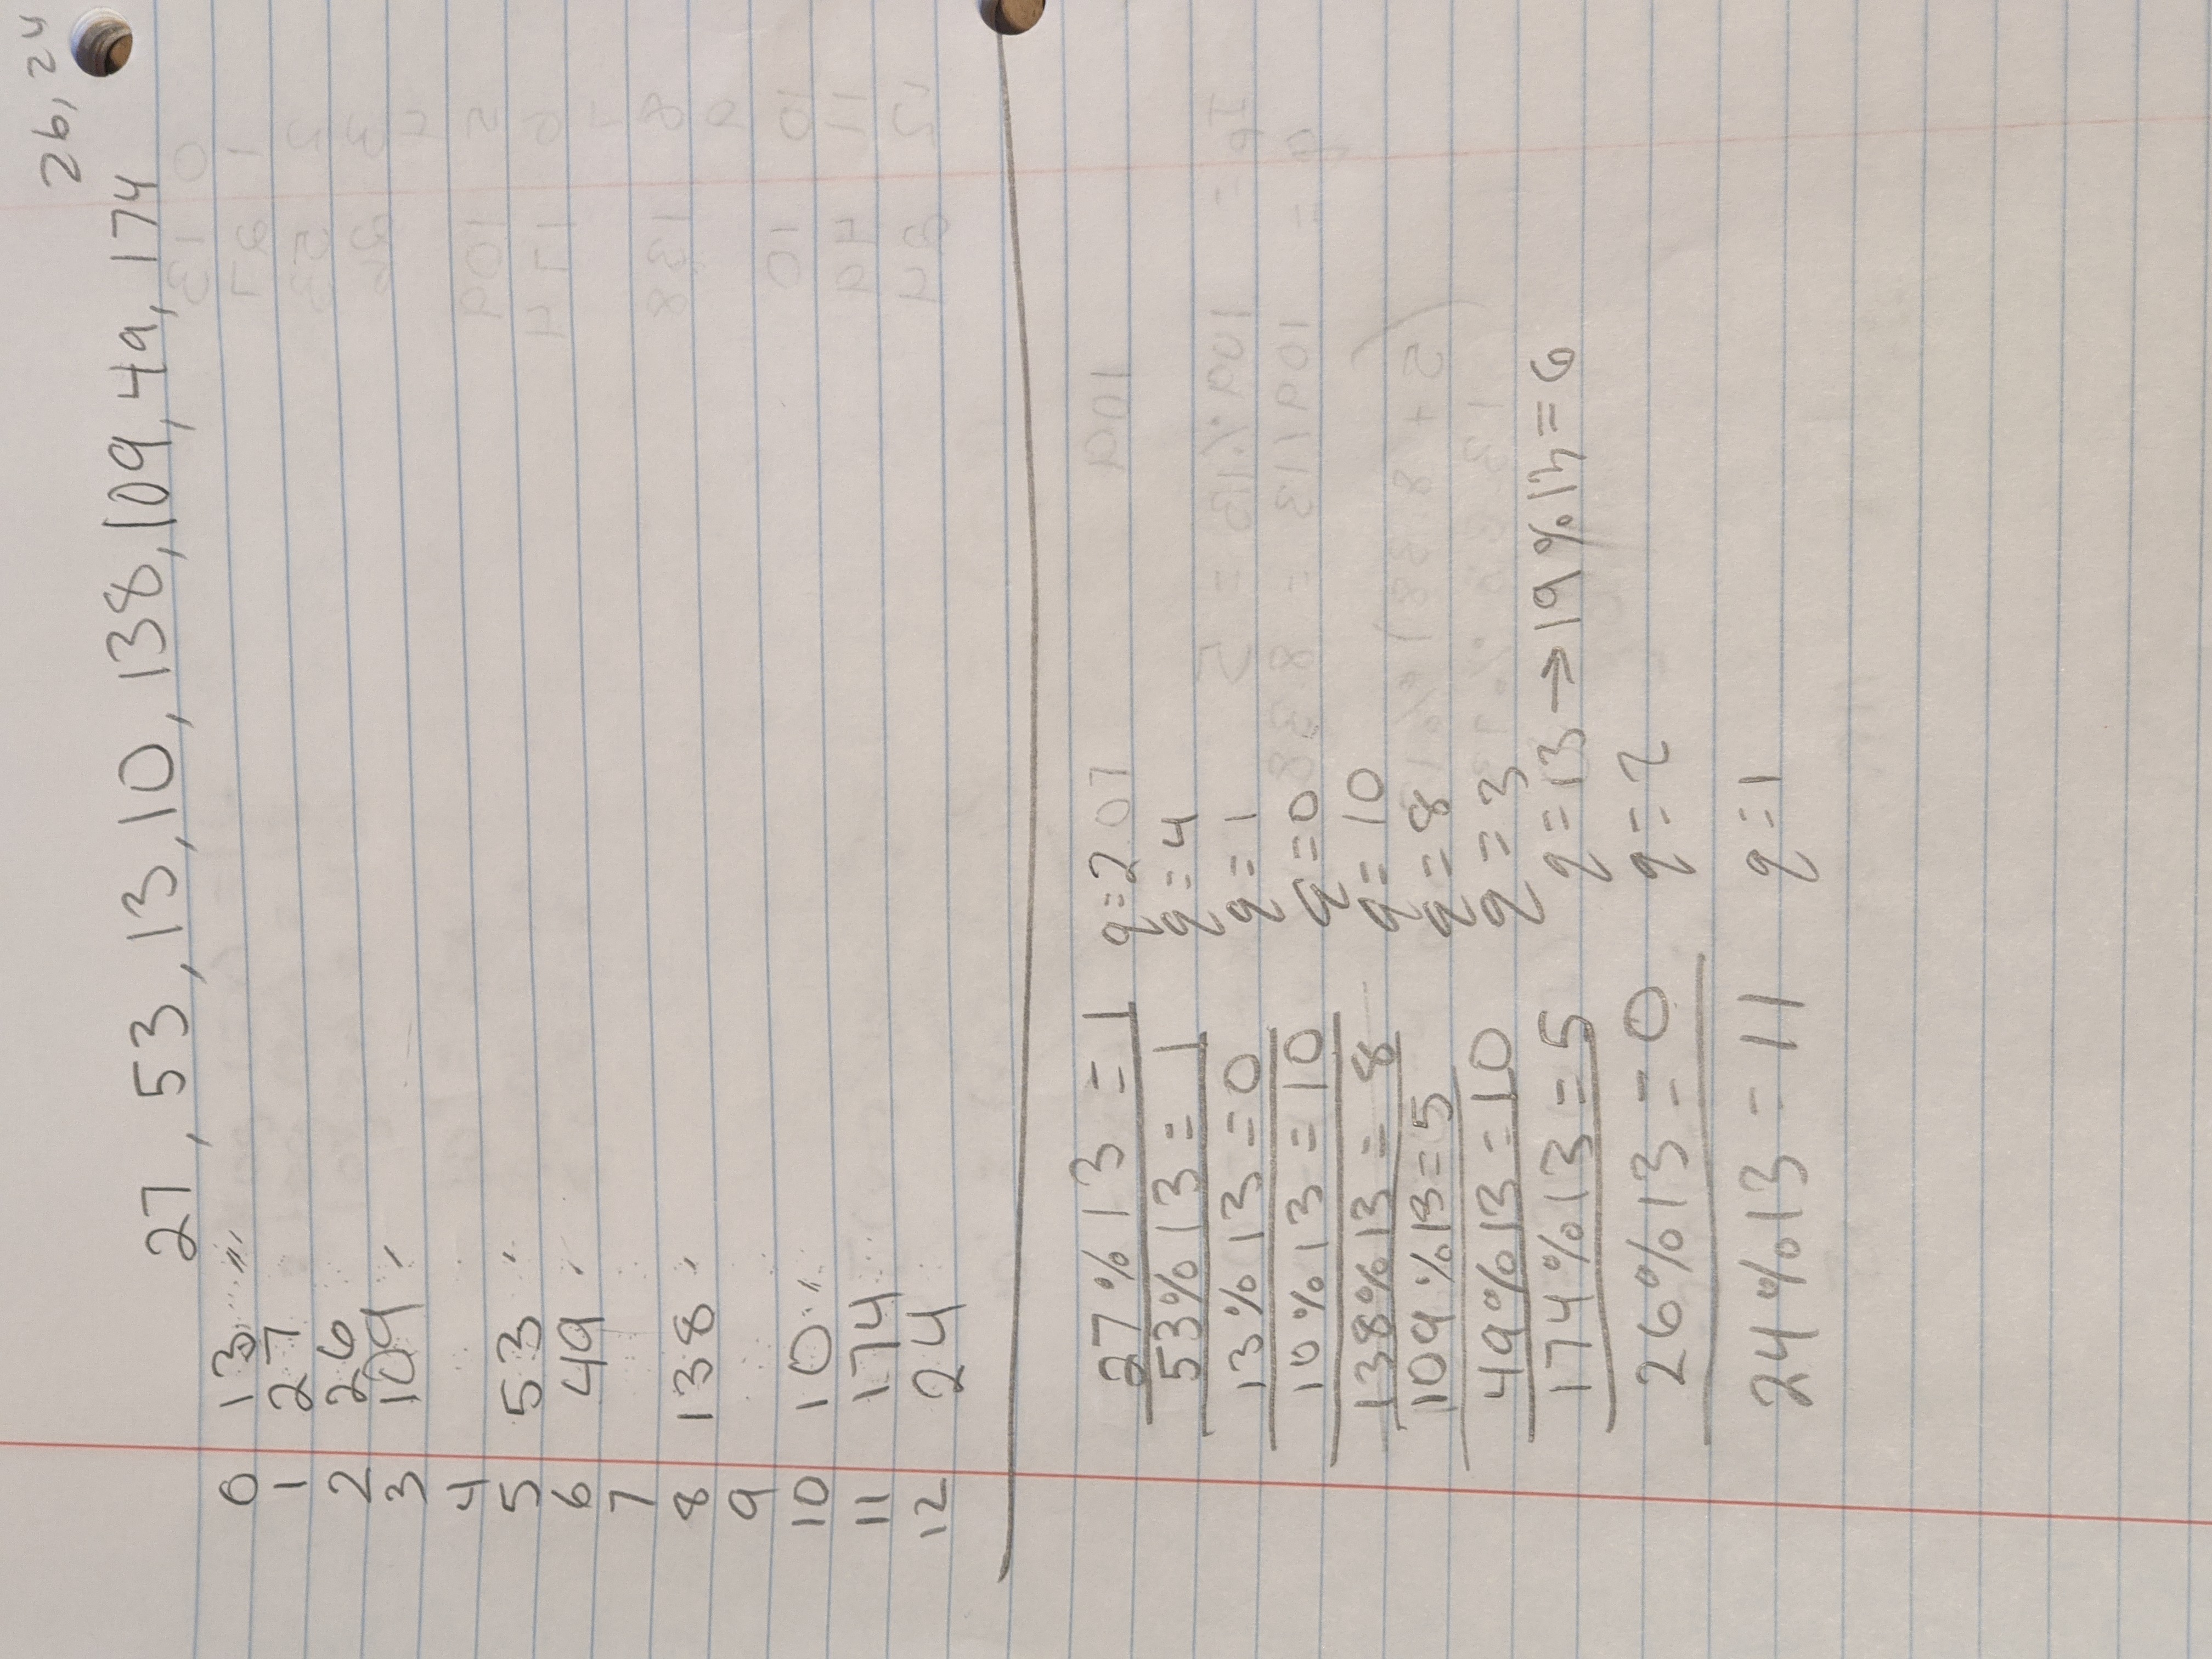 26, 24
27, 53, 13, 10, 138, 109, 49, 174
0 13
1 27
2 26
3 109
4
5 53
6 49
7
8 138
9
10 10
11 174
12 24
27 % 13 = 1 q = 2
53 % 13 = 1 q = 4
13 % 13 = 0 q = 1
10 % 13 = 10 q = 0
138 % 13 = 8 q = 10
109 % 13 = 5 q = 8
49 % 13 = 10 q = 3
174 % 13 = 5 q = 13 → 19 % 13 = 6
26 % 13 = 0 q = 2
24 % 13 = 11 q = 1